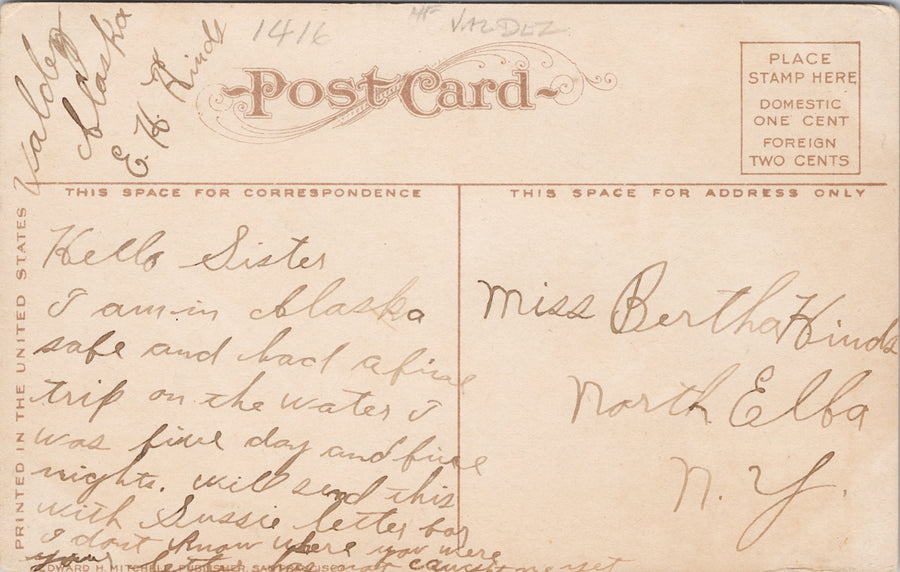 1416
VALDEZ
Valdez
Alaska
E. H. Hinds
Post Card
PLACE
STAMP HERE
DOMESTIC
ONE CENT
FOREIGN
TWO CENTS
THIS SPACE FOR CORRESPONDENCE
THIS SPACE FOR ADDRESS ONLY
PRINTED IN THE UNITED STATES
Hello Sister
I am in Alaska
safe and had a fine
trip on the water I
was five day and five
nights. will send this
with Sussie letter for
I dont know where you were
your letter has not caught me yet
EDWARD H. MITCHELL, PUBLISHER, SAN FRANCISCO
Miss Bertha Hinds
North Elba
N. Y.